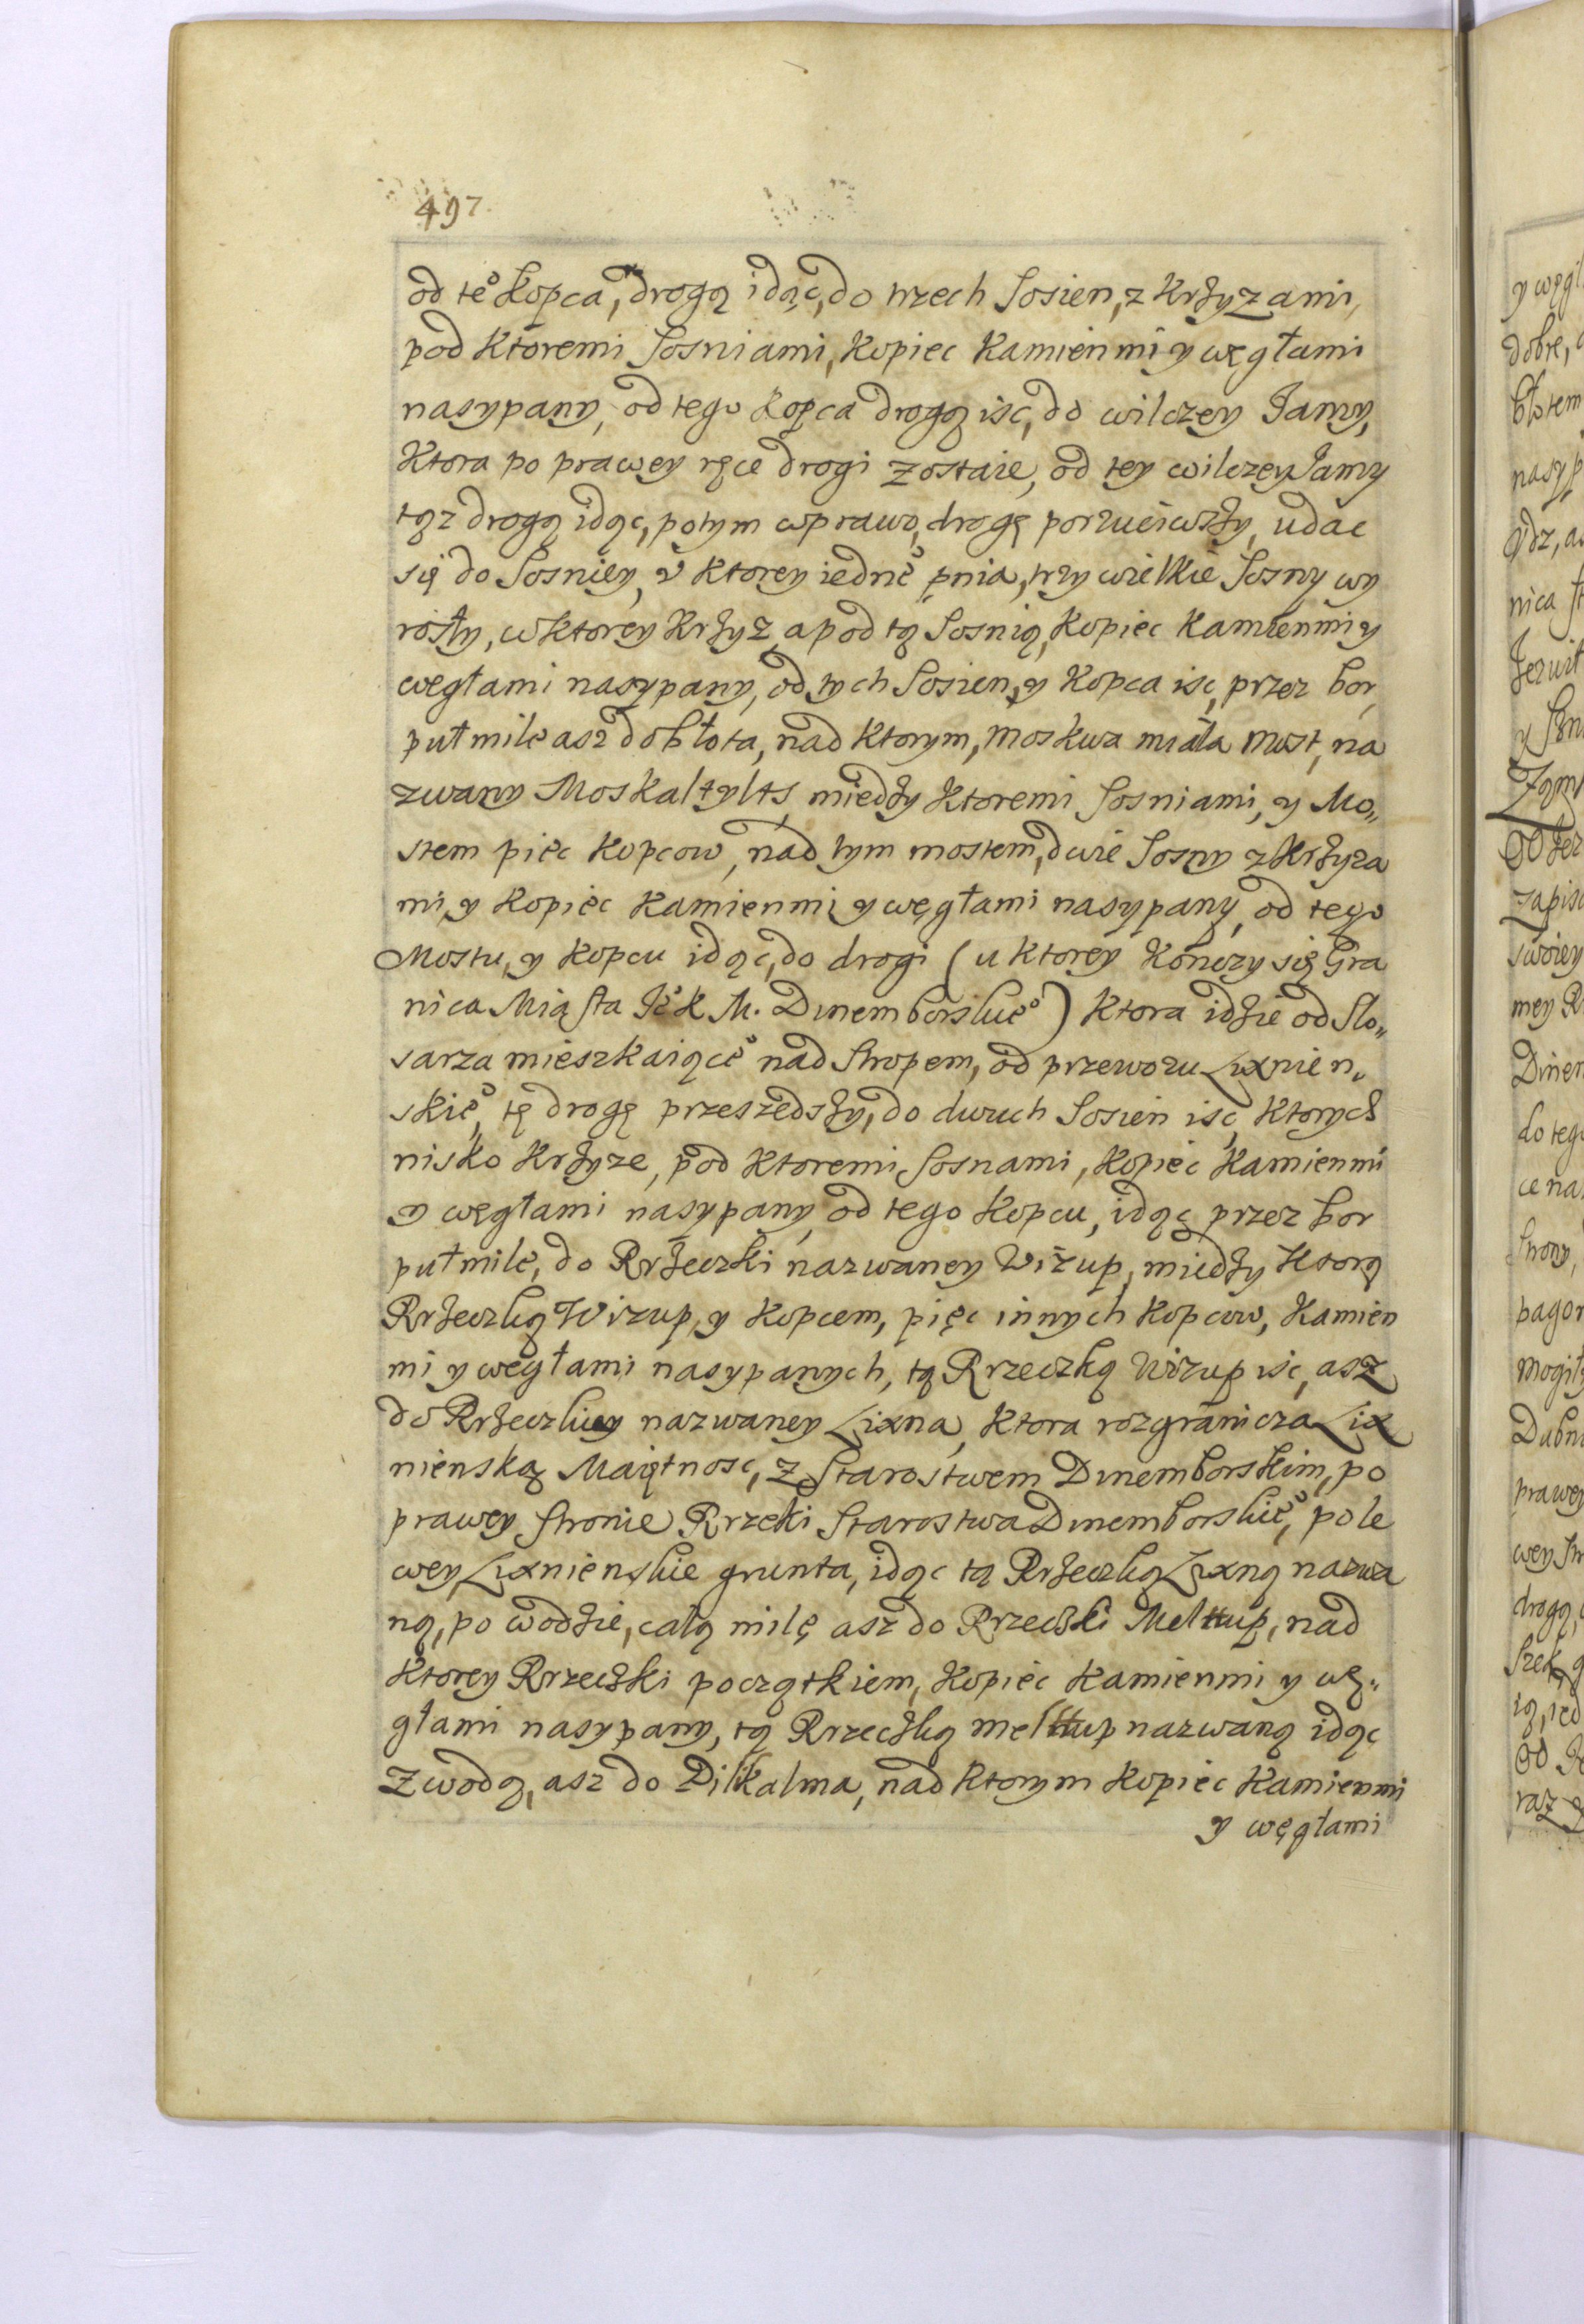 497.
od te͠o Kopca, drogą idąc, do trzech Sosien, z Krżyzami,
pod Ktoremi Sosniami, Kopiec Kamienmi y węgłami
nasypany, od tego Kopca drogą isc, do wilczey Jamy,
Ktora po prawey ręce drogi zostaie, od tey wilczey Jamy
tąz drogą idąc, potym wprawo, drogę porzuciwszy, udac
się do Sosniey, v Ktorey iedne͠o pnia, trzy wielkie Sosny wy
rosły, wktorey Krżyz, a pod tą Sosnią, Kopiec Kamienmi y
węgłami nasypany, od tych Sosien, y Kopca isc, przez bor,
puł mile asz do błota, nad Ktorym, Moskwa miała Most, na
zwany Moskaltylts, miedzy Ktoremi Sosniami, y Mo„
stem pięc Kopcow, nad tym mostem, dwie Sosny z Krżyza
mi, y Kopiec Kamienmi y węgłami nasypany, od tego
Mostu, y Kopcu idąc, do drogi (u Ktorey Konczy się Gra
nica Miasta Je͠o K M. Dinemborskie͠o) Ktora idzie od Slo„
sarza mieszkaiące͠o nad Stropem, od przewozu Lixnien„
skie͠o, tę drogę przeszedszy, do dwuch Sosien isc, Ktorych
nisko Krżyze, pod Ktoremi Sosnami, Kopiec Kamienmi
y węgłami nasypany, od tego Kopcu, idąc przez bor
puł mile, do Rrzeczki nazwaney Wizup, miedzy Ktorą
Rrzeczką Wizup, y Kopcem, pięc innych Kopcow, Kamien
mi y węgłami nasypanych, tą Rrzeczką Wizup isc, asz
do Rrzeczkiey nazwaney Lixna, Ktora rozgranicza Lix
nienską Maiętnosc, z Starostwem Dinemborskim, po
prawey stronie Rrzeki Starostwa Dinemborskie͠o, po le
wey Lixnienskie grunta, idąc tą Rrzeczką Lixną nazwa
ną, po wodzie, całą milę asz do Rrzeczki Meltup, nad
Ktorey Rrzeczki początkiem, Kopiec Kamienmi y wę„
głami nasypany, tą Rrzeczką meltup nazwaną idąc
Z wodą, asz do Dilikalma, nad Ktorym Kopiec Kamienmi
y węgłami